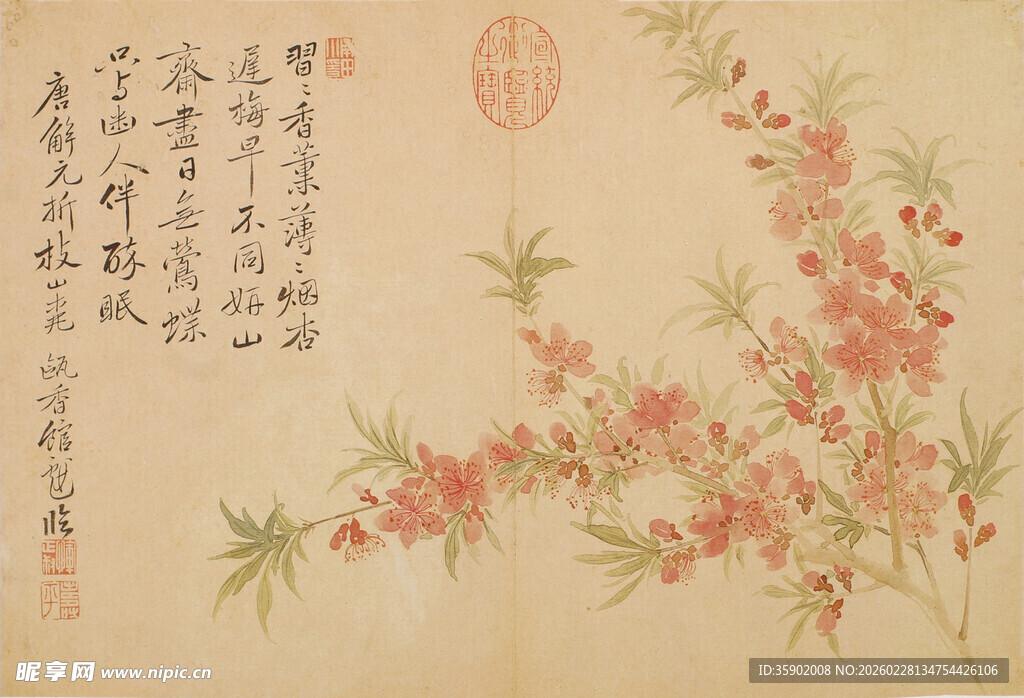 習〻香薰薄〻烟杏
遲梅早不同妍山
齋盡日無鶯蝶
只与幽人伴醉眠
唐解元折枝山桃 甌香館 臨
宣統御覽之寶
昵享网 www.nipic.cn
ID:35902008 NO:20260228134754426106